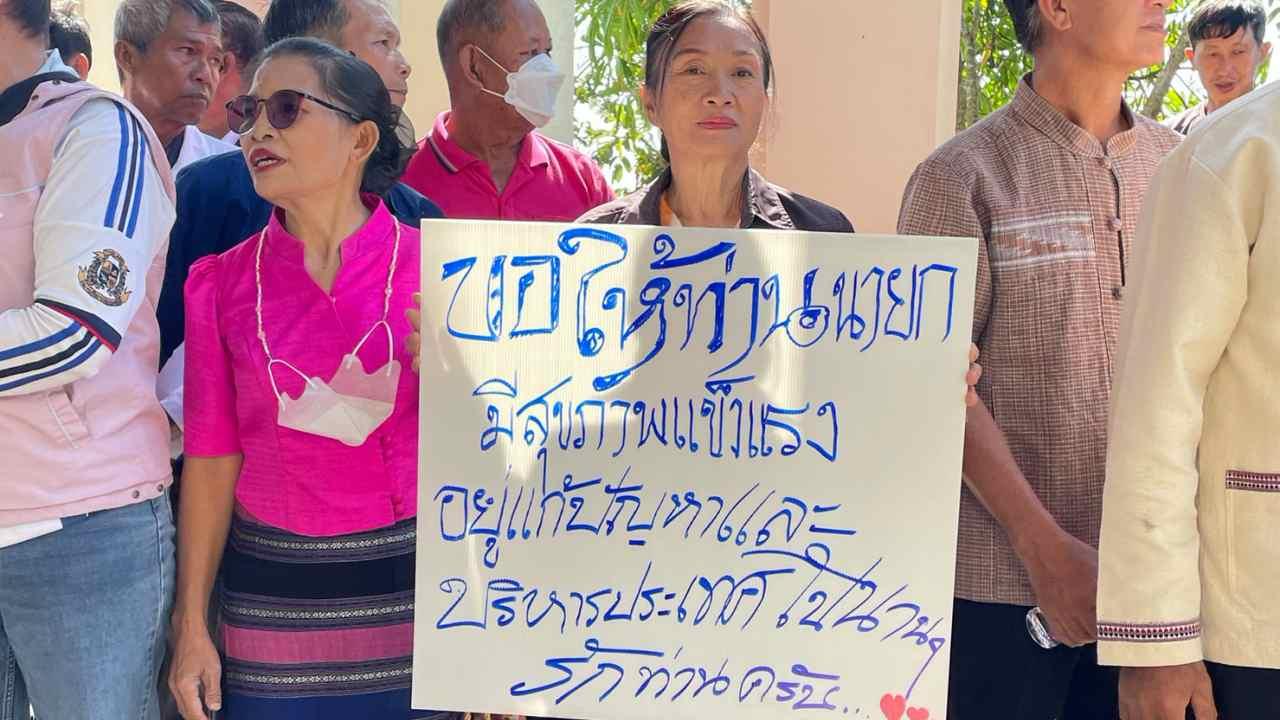 ขอให้ท่านนายก
มีสุขภาพแข็งแรง
อยู่แก้ปัญหาและ
บริหารประเทศไปนานๆ
รักท่านครับ...